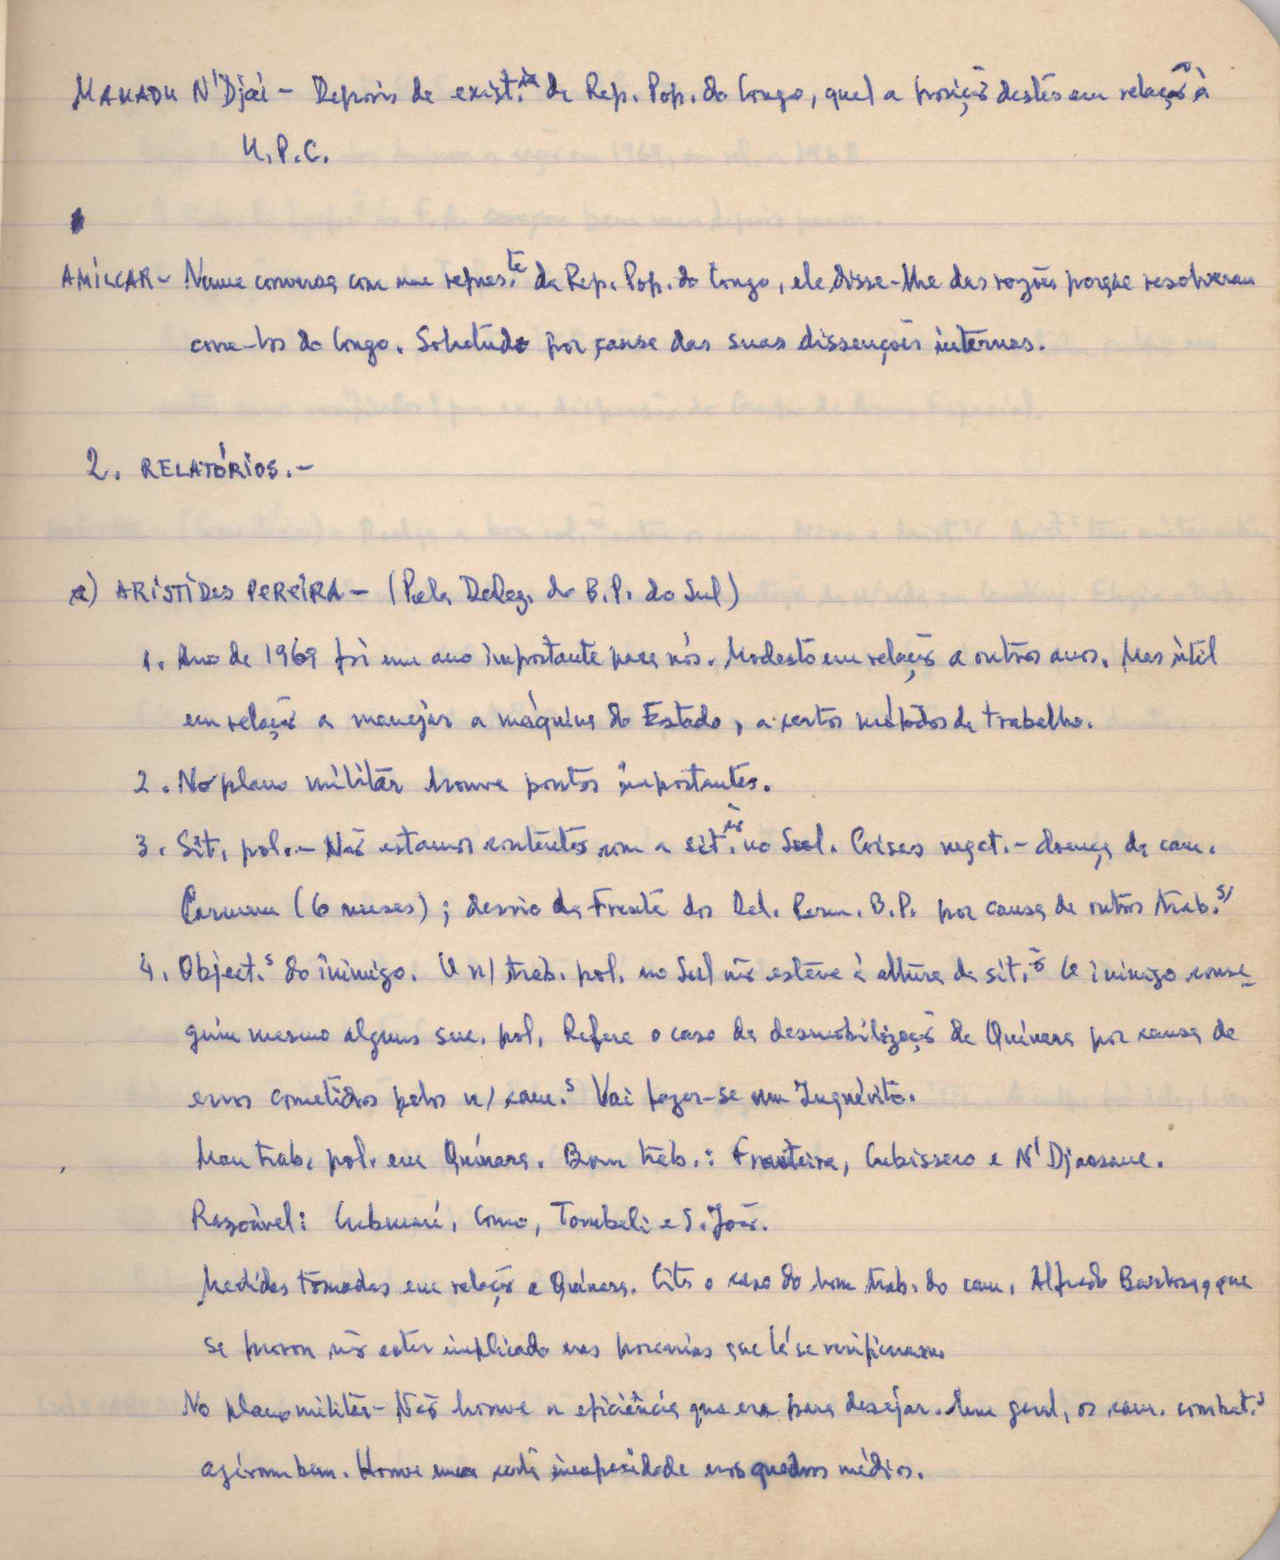 MAMADU N'Djai - Depois de exist.ia da Rep. Pop. do Congo, qual a posição destes em relação à
U.P.C.
AMÍLCAR - Numa conversa com um repres.te da Rep. Pop. do Congo, ele disse-lhe das razões porque resolveram
corre-los do Congo. Sobretudo por causa das suas dissenções internas.
2. RELATÓRIOS.-
a) ARISTIDES PEREIRA - (Pela Deleg. do B.P. do Sul)
1. Ano de 1969 foi um ano importante para nós. Modesto em relação a outros anos. Mas útil
em relação a manejar a máquina do Estado, a certos métodos de trabalho.
2. No plano militar houve pontos importantes.
3. Sit. pol.- Não estamos contentes com a sit.ão no Sul. Coisas negat.- doença do cam.
(6 meses); desvio da Frente dos Del. Perm. B.P. por causa de outros trab.s/
4. Object.s do inimigo. O n/ trab. pol. no Sul não esteve à altura da sit.ão O inimigo conse-
guiu mesmo alguns suc. pol. Refere o caso da desmobilização de Quínara por causa de
erros cometidos pelos n/ cam.s Vai fazer-se um Inquérito.
Mau trab. pol. em Quínara. Bom trab.: Fronteira, Cubisseco e N'Djassane.
Razoável: Cubucaré, Como, Tombali e S. João.
Medidas tomadas em relação a Quínara. Cita o caso do bom trab. do cam. Alfredo Barbosa, que
se provou não estar implicado nas porcarias que lá se verificaram.
No plano militar - Não houve a eficiência que era para desejar. Em geral, os cam. combat.s
agiram bem. Houve uma certa incapacidade nos quadros médios.